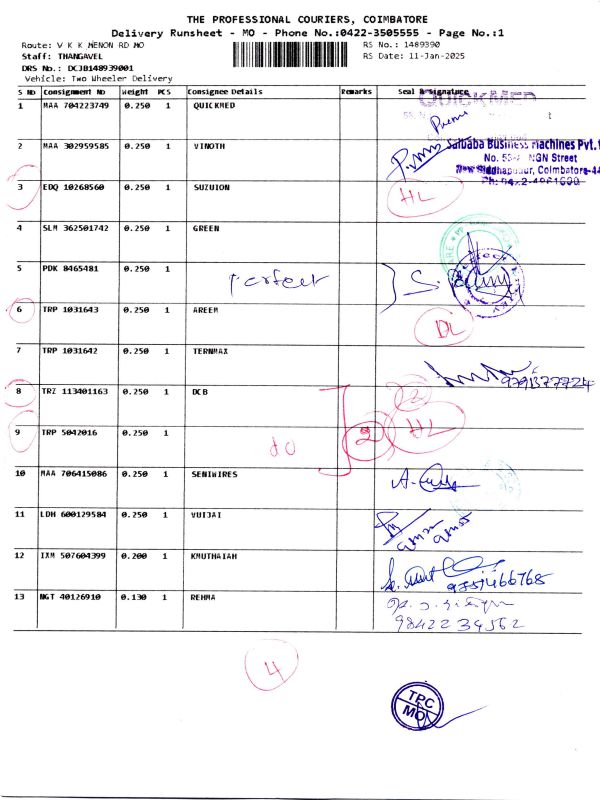 THE PROFESSIONAL COURIERS, COIMBATORE
Delivery Runsheet - MO - Phone No.:0422-3505555 - Page No.:1
Route: V K K MENON RD MO RS No.: 1489390
Staff: THANGAVEL RS Date: 11-Jan-2025
DRS No.: DCJB148939001
Vehicle: Two Wheeler Delivery
S No Consignment No Weight PCS Consignee Details Remarks Seal & Signature
QUICKMED
1 MAA 704223749 0.250 1 QUICKMED
2 MAA 302959585 0.250 1 VINOTH
Saibaba Business Machines Pvt.
No. NGN Street
New Siddhapudur, Coimbatore-44
3 EDQ 10268560 0.250 1 SUZUION HL
4 SLM 362501742 0.250 1 GREEN
5 PDK 8465481 0.250 1 perfect
6 TRP 1031643 0.250 1 AREEM DL
7 TRP 1031642 0.250 1 TERNMAX
9791377724
8 TRZ 113401163 0.250 1 DCB
9 TRP 5042016 0.250 1 do 2 HL
10 MAA 706415086 0.250 1 SENIWIRES
11 LDH 600129584 0.250 1 VUIJAI
12 IXM 507604399 0.200 1 KMUTHAIAH
13 NGT 40126910 0.130 1 REHMA
9842234562
4
TPC
MO